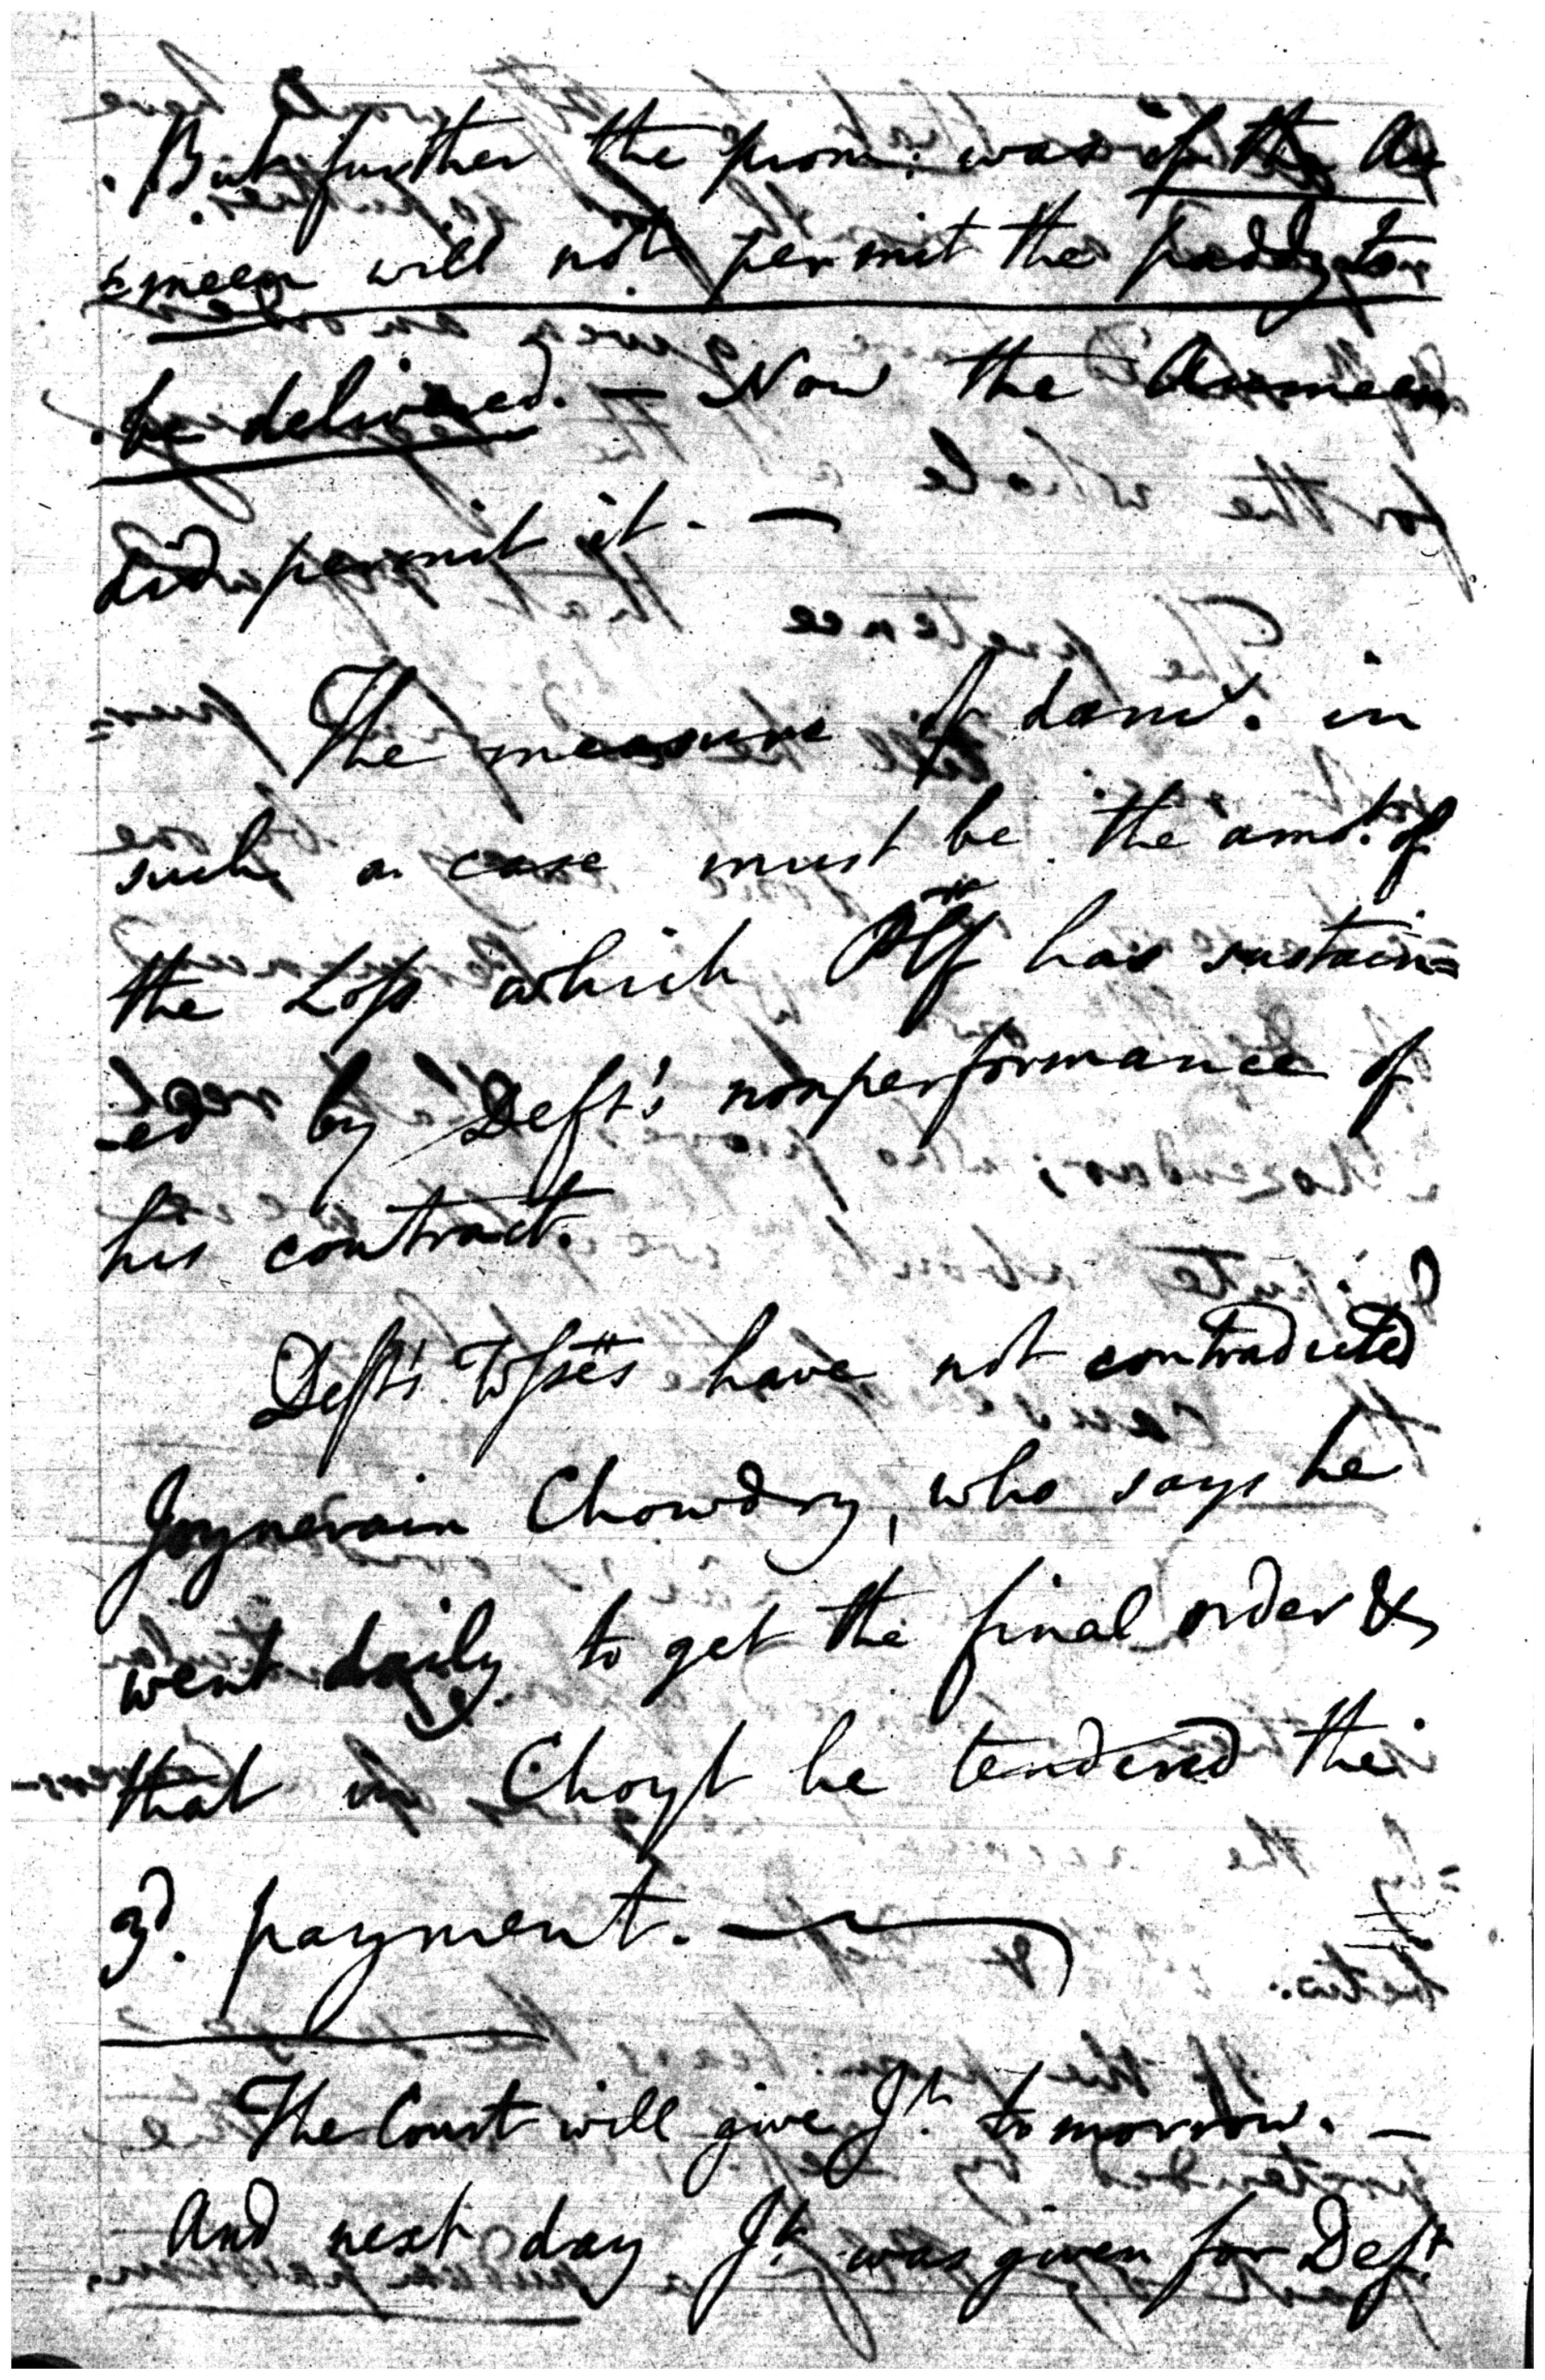 But further the prom: was if the Au
=meen will not permit the paddy to
be delivered. — Now the Aumeen
did permit it. —
The measure of dams. in
such a case must be the amot. of
the Loss which Plff has sustain=
-ed by Deft's nonperformance of
his contract.
Deft's Wsses have not contradicted
Joynerain Chowdry, who says he
went daily to get the final order &
that in Choyt he tendered the
3d. payment. —
The Court will give Jt. tomorrow. —
And next day Jt. was given for Deft.